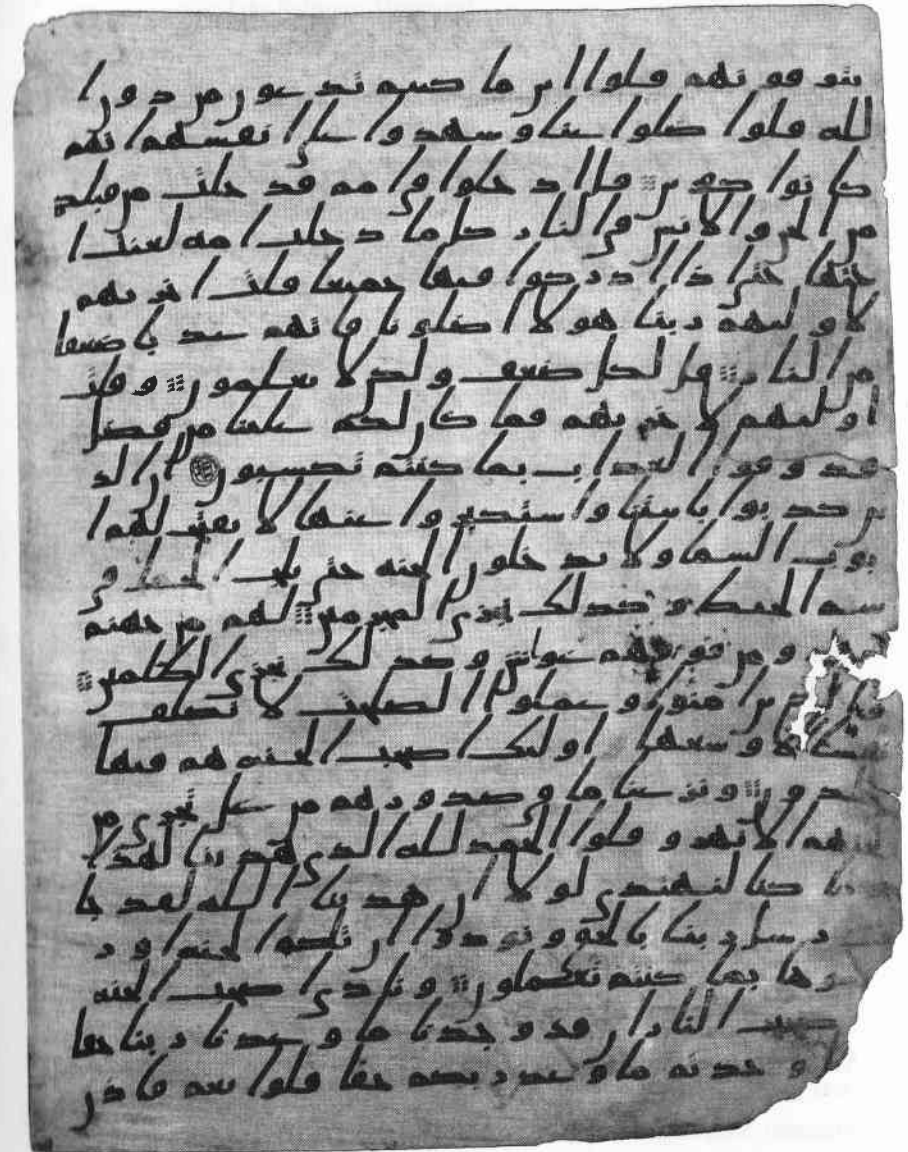 يتوفونهم قلوا اين ما كنتم تدعون من دون ا
لله قلوا ضلوا عنا وشهدوا على انفسهم انهم
كانوا كفرين قل ادخلوا في امم قد خلت من قبلكم
من الجن والانس في النار كلما دخلت امه لعنت ا
ختها حتى اذا ادركوا فيها جميعا قلت اخريهم
لاوليهم ربنا هولا اضلونا فاتهم عذبا ضعفا
من النار قل لكل ضعف ولكن لا تعلمون وقلت
اوليهم لاخريهم فما كان لكم علينا من فضل
فذوقوا العذاب بما كنتم تكسبون ان الذ
ين كذبوا بايتنا واستكبروا عنها لا تفتح لهم ا
بوب السما ولا يدخلون الجنه حتى يلج الجمل في
سم الخيط وكذلك نجزي المجرمين لهم من جهنم
ومن فوقهم غواش وكذلك نجزي الظلمين
والذين امنوا وعملوا الصلحت لا نكلف
نفسا الا وسعها اولئك اصحب الجنه هم فيها
خلدون ونزعنا ما في صدورهم من غل تجري من
تحتهم الانهر وقلوا الحمد لله الذي هدينا لهذا
كنا لنهتدي لولا ان هدينا الله لقد جا
رسل ربنا بالحق ونودوا ان تلكم الجنه اور
وها بما كنتم تعملون ونادى اصحب الجنه
اصحب النار ان قد وجدنا ما وعدنا ربنا حقا
وجدتم ما وعد ربكم حقا قلوا نعم فاذن